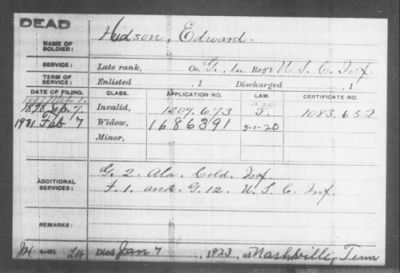 DEAD
NAME OF SOLDIER: Hudson, Edward.
SERVICE: Late rank, Co. G, Reg't U. S. C. Inf
TERM OF SERVICE: Enlisted , 1 Discharged , 1
DATE OF FILING. CLASS. APPLICATION NO. LAW. CERTIFICATE NO.
Invalid, 1209.673 1083.652
1921 Feb 7 Widow, 1686391 5-1-20
Minor,
ADDITIONAL SERVICES: G. 2. Ala. Cold. Inf
F. 1. and G. 12. U. S. C. Inf.
REMARKS:
Died Jan 7, 1923, at Nashville, Tenn